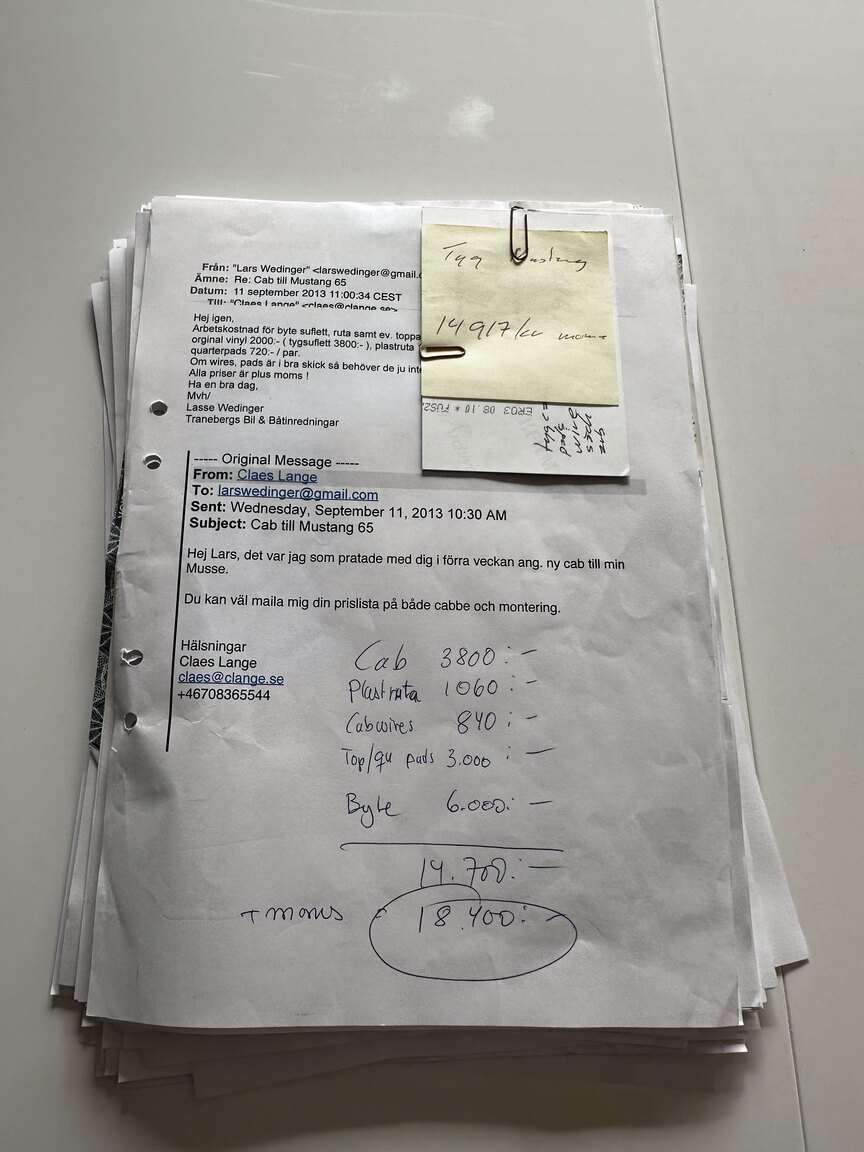 Från: "Lars Wedinger" <larswedinger@gmail.c
Ämne: Re: Cab till Mustang 65
Datum: 11 september 2013 11:00:34 CEST
Till: "Claes Lange" <claes@clange.se>
Hej igen,
Arbetskostnad för byte suflett, ruta samt ev. toppa
orginal vinyl 2000:- ( tygsuflett 3800:- ), plastruta
quarterpads 720:- / par.
Om wires, pads är i bra skick så behöver de ju inte
Alla priser är plus moms !
Ha en bra dag,
Mvh/
Lasse Wedinger
Tranebergs Bil & Båtinredningar
Tyg Mustang
14917/kr moms
ERO3 08.10 * FUSZ
----- Original Message -----
From: Claes Lange
To: larswedinger@gmail.com
Sent: Wednesday, September 11, 2013 10:30 AM
Subject: Cab till Mustang 65
Hej Lars, det var jag som pratade med dig i förra veckan ang. ny cab till min
Musse.
Du kan väl maila mig din prislista på både cabbe och montering.
Hälsningar
Claes Lange
claes@clange.se
+46708365544
Cab 3800:-
Plastruta 1060:-
Cabwires 840:-
Top/qu pads 3.000:-
Byte 6.000:-
14.700:-
+ moms = 18.400:-